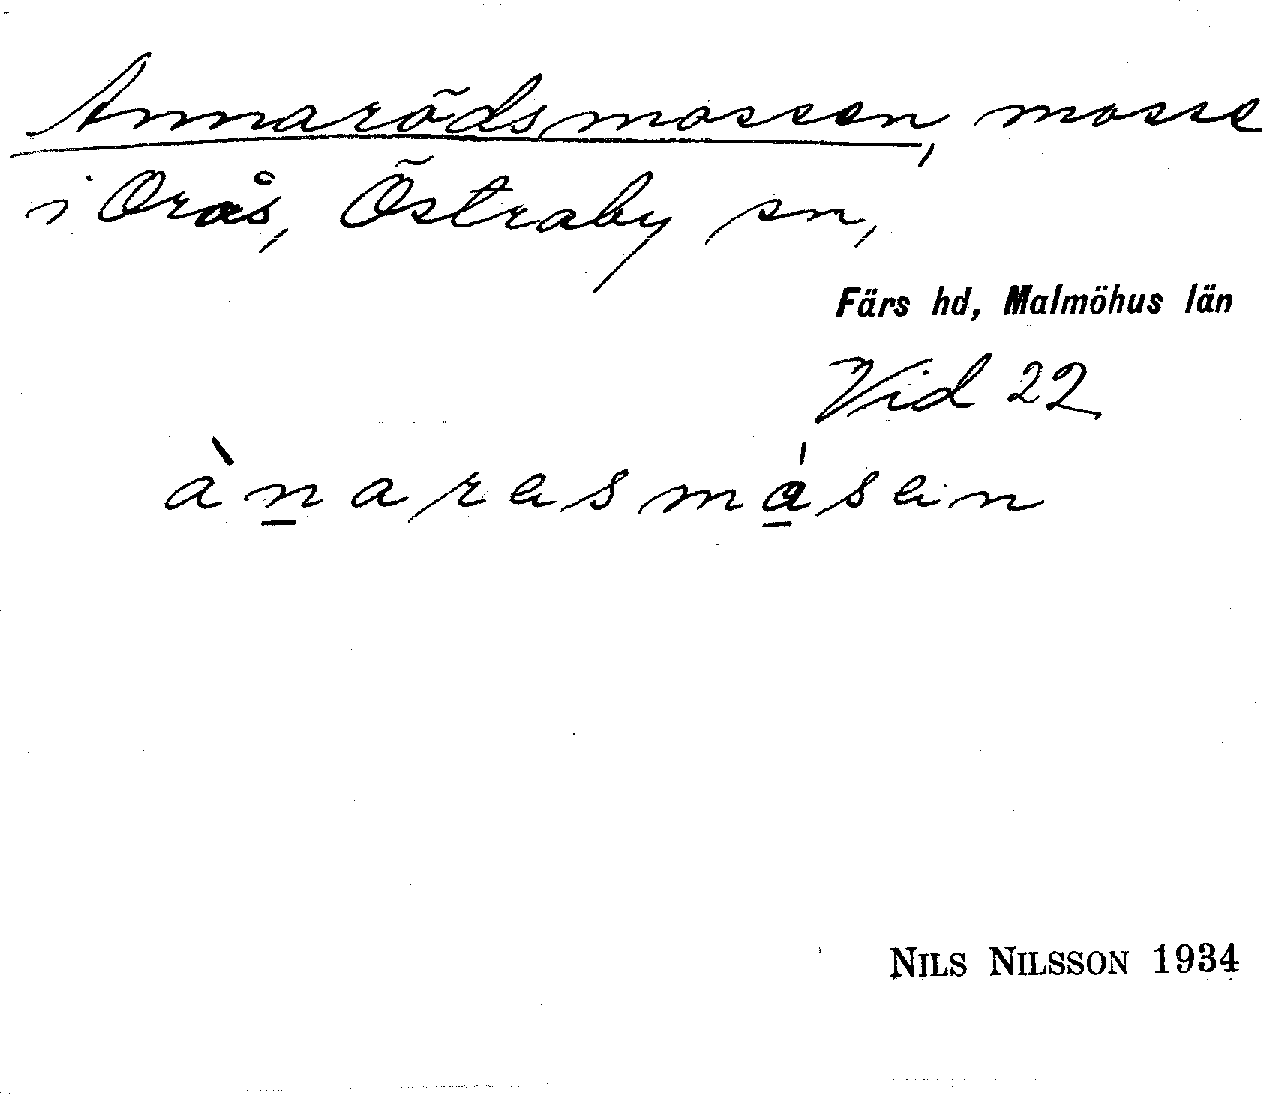 Annarödsmossen, mosse
i Orås, Östraby sn,
Färs hd, Malmöhus län
Vid 22
ànarasmåsan
NILS NILSSON 1934